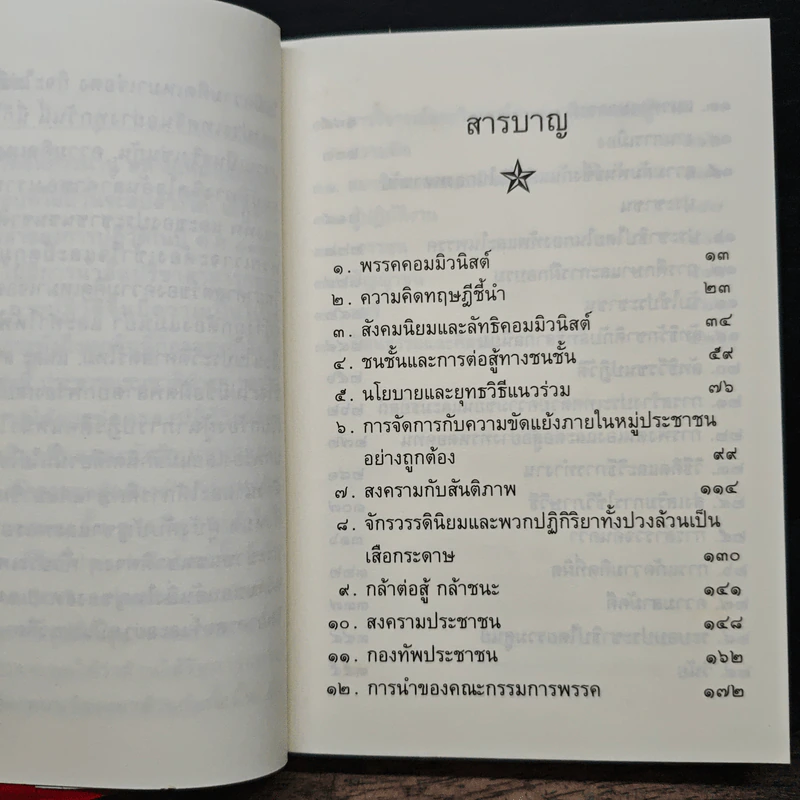 สารบาญ
๑. พรรคคอมมิวนิสต์ ๑๓
๒. ความคิดทฤษฎีชี้นำ ๒๓
๓. สังคมนิยมและลัทธิคอมมิวนิสต์ ๓๔
๔. ชนชั้นและการต่อสู้ทางชนชั้น ๕๙
๕. นโยบายและยุทธวิธีแนวร่วม ๗๖
๖. การจัดการกับความขัดแย้งภายในหมู่ประชาชน
อย่างถูกต้อง ๙๙
๗. สงครามกับสันติภาพ ๑๑๔
๘. จักรวรรดินิยมและพวกปฏิกิริยาทั้งปวงล้วนเป็น
เสือกระดาษ ๑๓๐
๙. กล้าต่อสู้ กล้าชนะ ๑๔๑
๑๐. สงครามประชาชน ๑๔๘
๑๑. กองทัพประชาชน ๑๖๒
๑๒. การนำของคณะกรรมการพรรค ๑๗๒